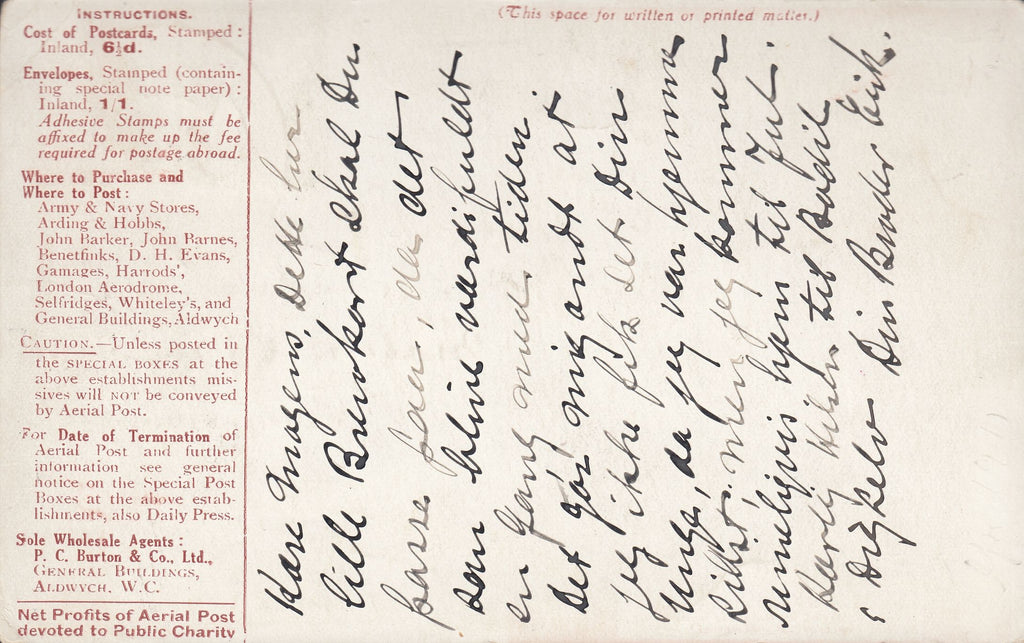 INSTRUCTIONS.
Cost of Postcards, Stamped:
Inland, 6½d.
Envelopes, Stamped (contain-
ing special note paper):
Inland, 1/1.
Adhesive Stamps must be
affixed to make up the fee
required for postage abroad.
Where to Purchase and
Where to Post:
Army & Navy Stores,
Arding & Hobbs,
John Barker, John Barnes,
Benetfinks, D. H. Evans,
Gamages, Harrods',
London Aerodrome,
Selfridges, Whiteley's, and
General Buildings, Aldwych
CAUTION.—Unless posted in
the SPECIAL BOXES at the
above establishments mis-
sives will NOT be conveyed
by Aerial Post.
For Date of Termination of
Aerial Post and further
information see general
notice on the Special Post
Boxes at the above estab-
lishments, also Daily Press.
Sole Wholesale Agents:
P. C. Burton & Co., Ltd.,
GENERAL BUILDINGS,
ALDWYCH. W.C.
Net Profits of Aerial Post
devoted to Public Charity
(This space for written or printed matter.)
Kære Mogens, Dette her
lille Brevkort skal Du
passe paa, da det
kan blive værdifuldt
en Gang med Tiden.
Det gør mig ondt at
jeg ikke fik set Din
Unge, da jeg var hjemme
sidst, men jeg kommer
rimeligvis hjem til Jul.
Kærlig Hilsen til Bodil
& Dig selv Din Broder Eick.